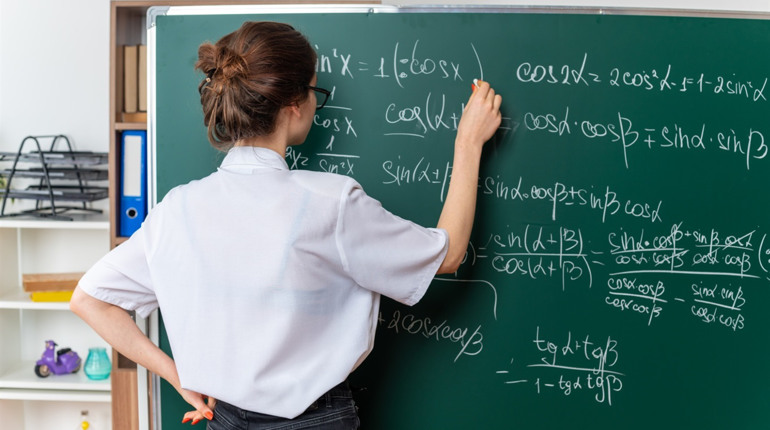 in²x = 1 (:cosx)
cos2α = 2cos²α-1=1-2sin²α
1/cosx
cos(α± = cosα·cosβ∓sinα·sinβ
1/sin²x
sin(α±β = sinα·cosβ±sinβ cosα
= sin(α+β)/cos(α+β) = (sinα·cosβ/cosα·cosβ + sinβ·cosα/cosα·cosβ)/(cosα·cosβ/cosα·cosβ - sinα·sinβ/cosα·cosβ)
+ 2cosαcosβ
= (tgα+tgβ)/(1-tgα tgβ)